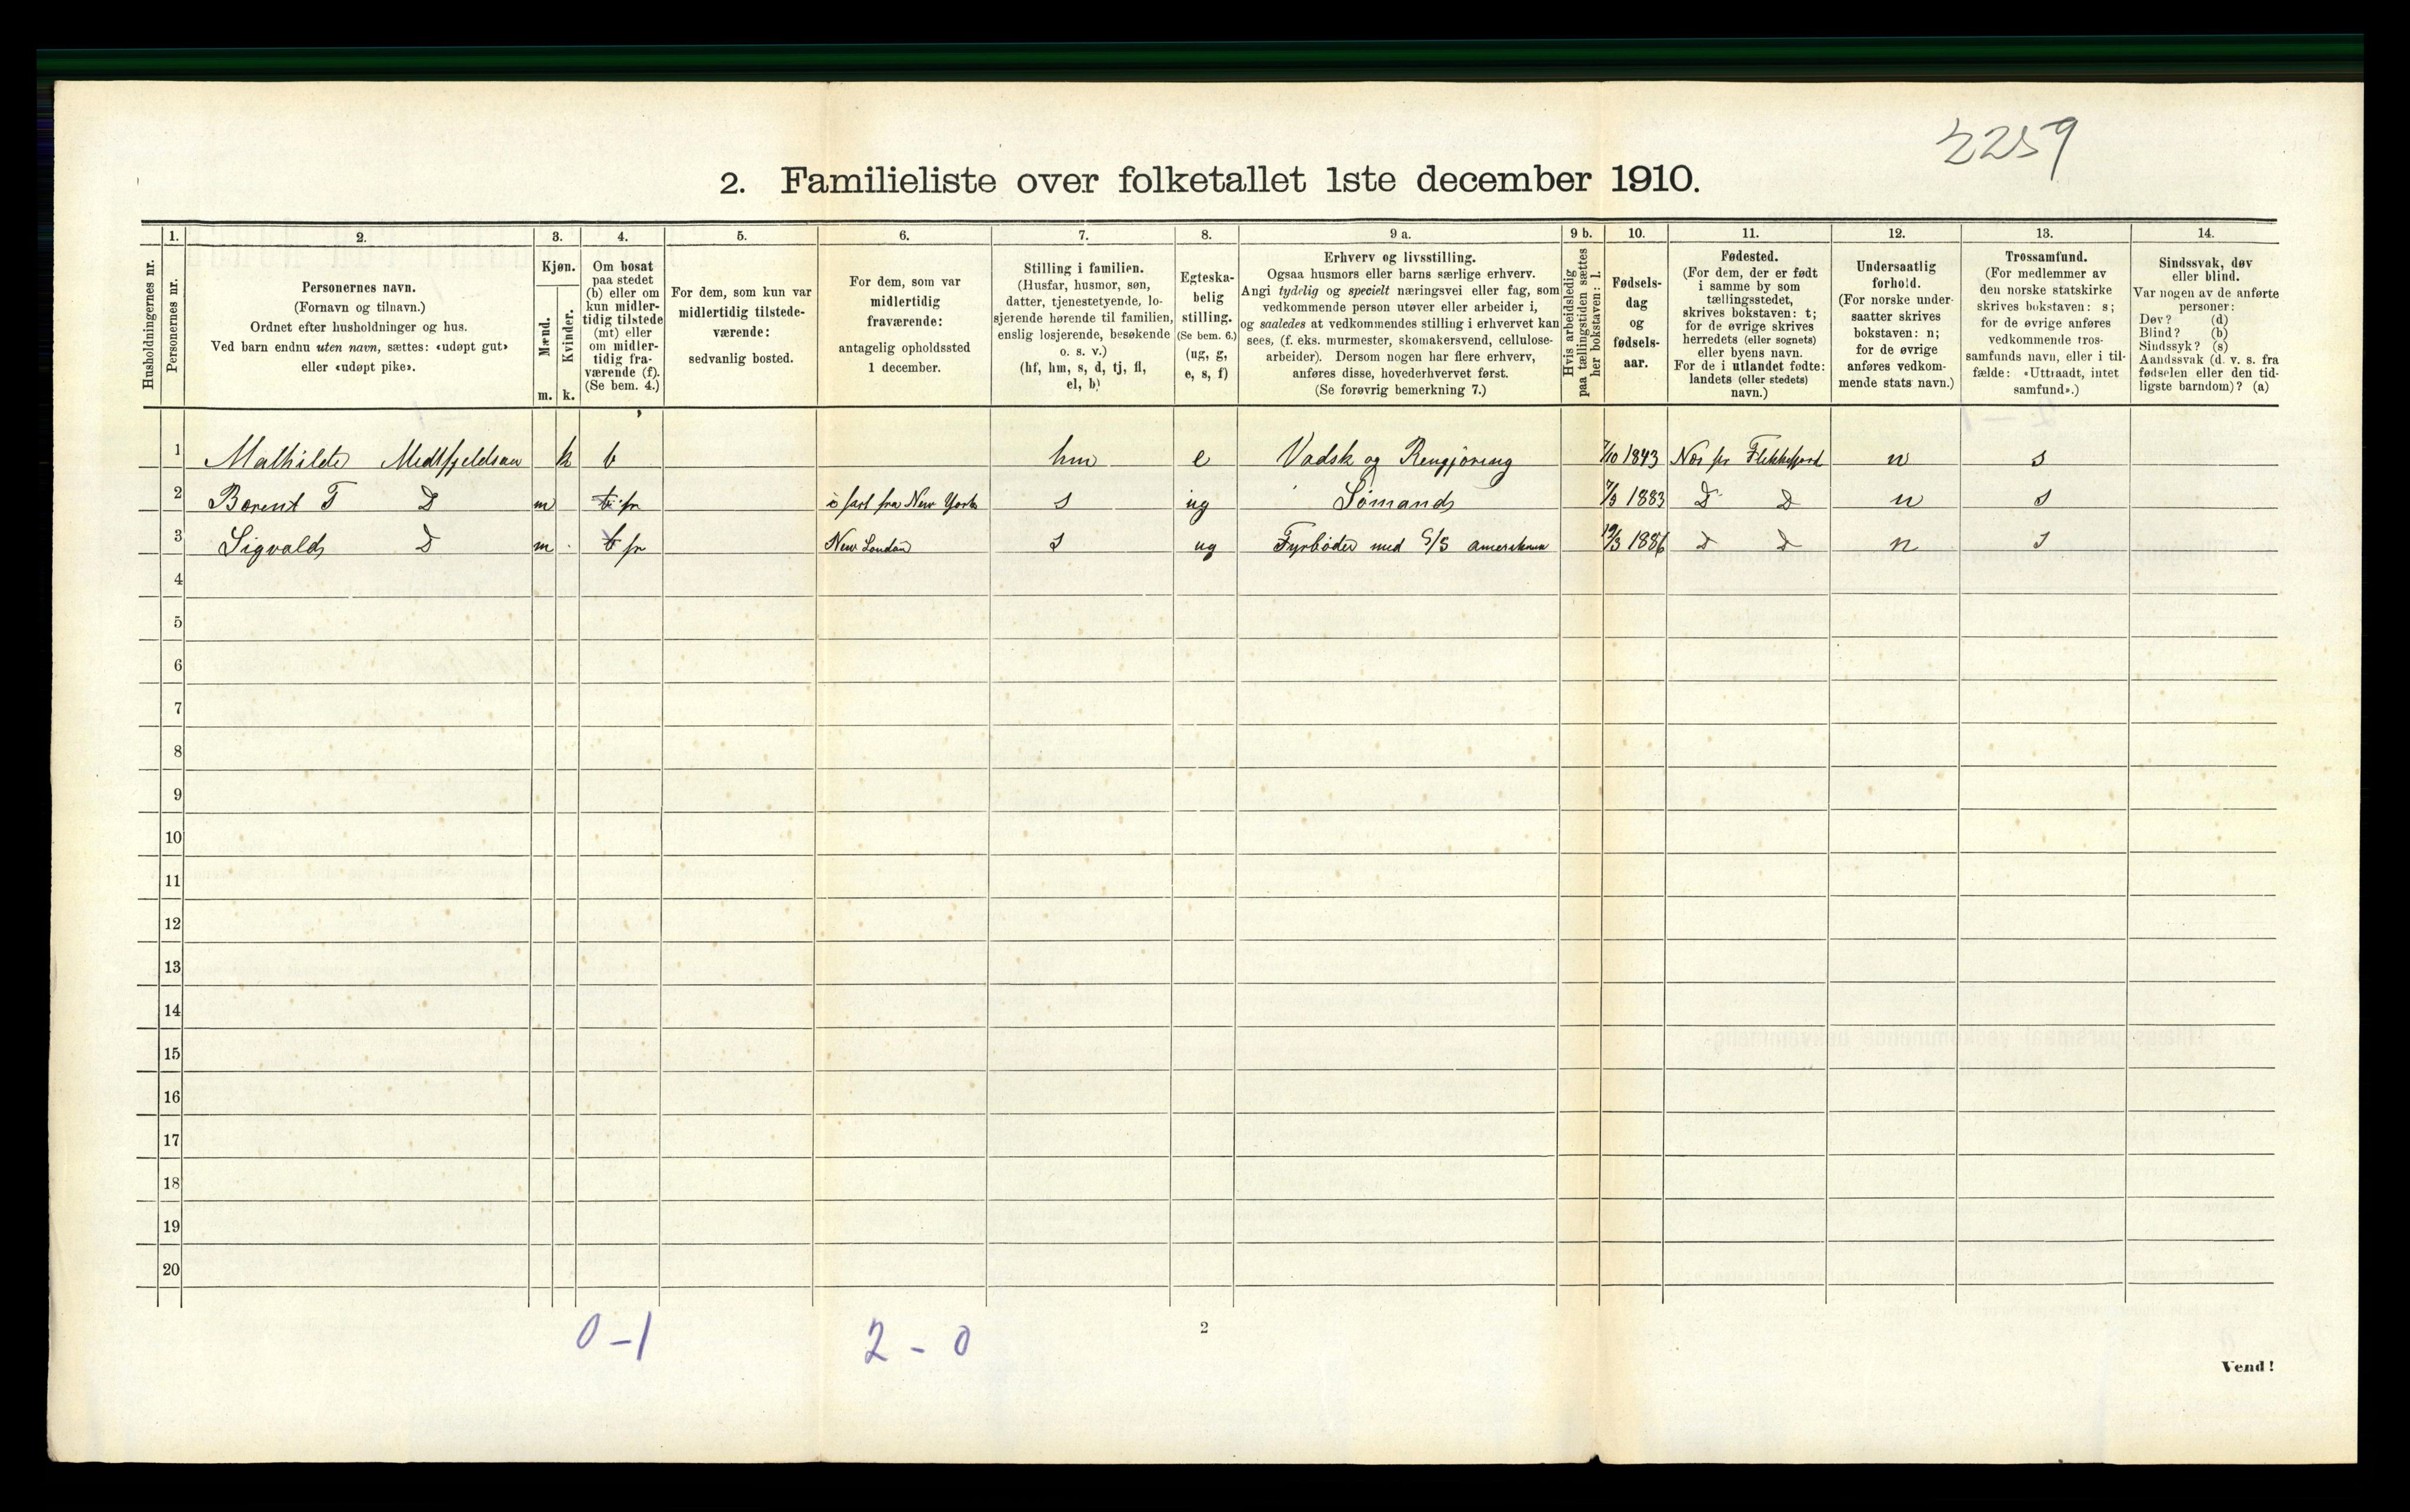 2259
2. Familieliste over folketallet 1ste december 1910.
Husholdningernes nr.
1.
Personernes nr.
2.
Personernes navn.
(Fornavn og tilnavn.)
Ordnet efter husholdninger og hus.
Ved barn endnu uten navn, sættes: «udøpt gut»
eller «udøpt pike».
3.
Kjøn.
Mænd.
Kvinder.
m. k.
4.
Om bosat
paa stedet
(b) eller om
kun midler-
tidig tilstede
(mt) eller
om midler-
tidig fra-
værende (f).
(Se bem. 4.)
5.
For dem, som kun var
midlertidig tilstede-
værende:
sedvanlig bosted.
6.
For dem, som var
midlertidig
fraværende:
antagelig opholdssted
1 december.
7.
Stilling i familien.
(Husfar, husmor, søn,
datter, tjenestetyende, lo-
sjerende hørende til familien,
enslig losjerende, besøkende
o. s. v.)
(hf, hm, s, d, tj, fl,
el, b)
8.
Egteska-
belig
stilling.
(Se bem. 6.)
(ug, g,
e, s, f)
9 a.
Erhverv og livsstilling.
Ogsaa husmors eller barns særlige erhverv.
Angi tydelig og specielt næringsvei eller fag, som
vedkommende person utøver eller arbeider i,
og saaledes at vedkommendes stilling i erhvervet kan
sees, (f. eks. murmester, skomakersvend, cellulose-
arbeider). Dersom nogen har flere erhverv,
anføres disse, hovederhvervet først.
(Se forøvrig bemerkning 7.)
9 b.
Hvis arbeidsledig
paa tællingstiden sættes
her bokstaven: l.
10.
Fødsels-
dag
og
fødsels-
aar.
11.
Fødested.
(For dem, der er født
i samme by som
tællingsstedet,
skrives bokstaven: t;
for de øvrige skrives
herredets (eller sognets)
eller byens navn.
For de i utlandet fødte:
landets (eller stedets)
navn.)
12.
Undersaatlig
forhold.
(For norske under-
saatter skrives
bokstaven: n;
for de øvrige
anføres vedkom-
mende stats navn.)
13.
Trossamfund.
(For medlemmer av
den norske statskirke
skrives bokstaven: s;
for de øvrige anføres
vedkommende tros-
samfunds navn, eller i til-
fælde: «Uttraadt, intet
samfund».)
14.
Sindssvak, døv
eller blind.
Var nogen av de anførte
personer:
Døv? (d)
Blind? (b)
Sindssyk? (s)
Aandssvak (d. v. s. fra
fødselen eller den tid-
ligste barndom)? (a)
1 Mathilde k b hm e Vadsk og Rengjøring 7/10 1843 Nes pr Flekkefjord n s
2 Berent T D m b fr i fart fra New York s ug Sømand 1883 D D n s
3 Sigvald D m b fr New London s ug Fyrbøder med S/S 19/3 1886 D D n s
4
5
6
7
8
9
10
11
12
13
14
15
16
17
18
19
20
0 - 1 2 - 0
2
Vend!